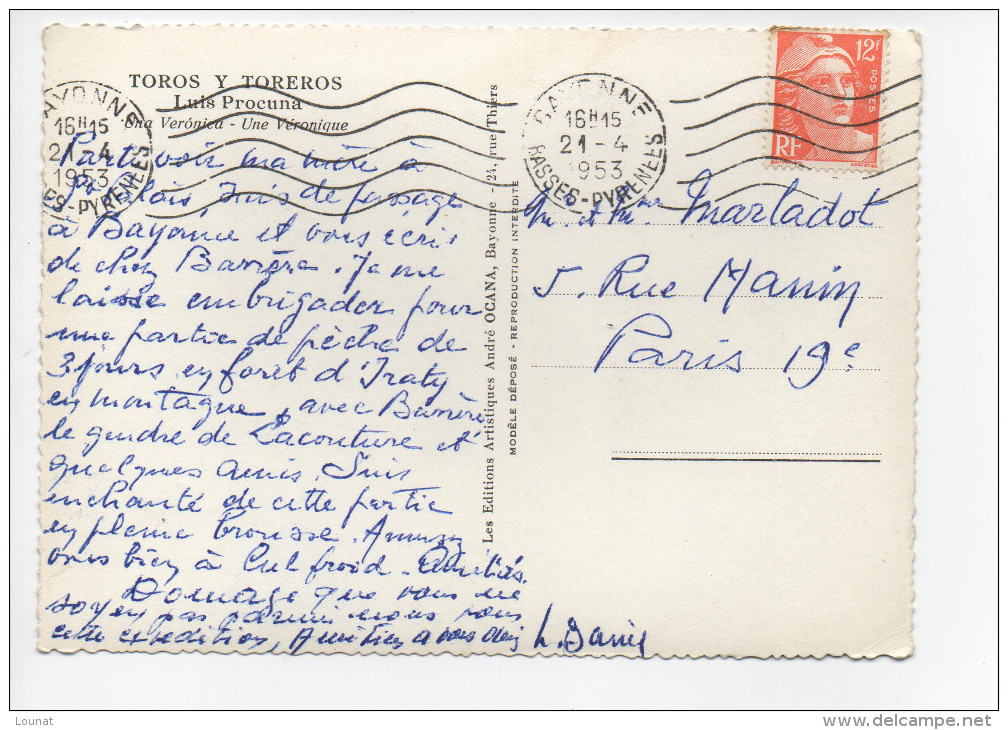 TOROS Y TOREROS
Luis Procuna
Una Verónica - Une Véronique
BAYONNE
16H15
21-4
1953
BASSES-PYRENEES
BAYONNE
16H15
21-4
1953
BASSES-PYRENEES
12F
POSTES
RF
Parti voir ma mère à
Palais, suis de passage
à Bayonne et vous écris
de chez Barrère. Je me
laisse embrigader pour
une partie de pêche de
3 jours en forêt d'Iraty
en montagne, avec Barrère
le gendre de Lacouture et
quelques amis. Suis
enchanté de cette partie
en pleine brousse. Amusez
vous bien à Cul froid. Amitiés.
Domage que vous ne
soyez pas parmi nous pour
cette expédition, Amitiés a vous deux
Les Editions Artistiques André OCANA, Bayonne - 24, rue Thiers
MODÈLE DÉPOSÉ - REPRODUCTION INTERDITE
M. et Mme Marladot
5. Rue Manin
Paris 19e
Lounat
http://www.delcampe.net